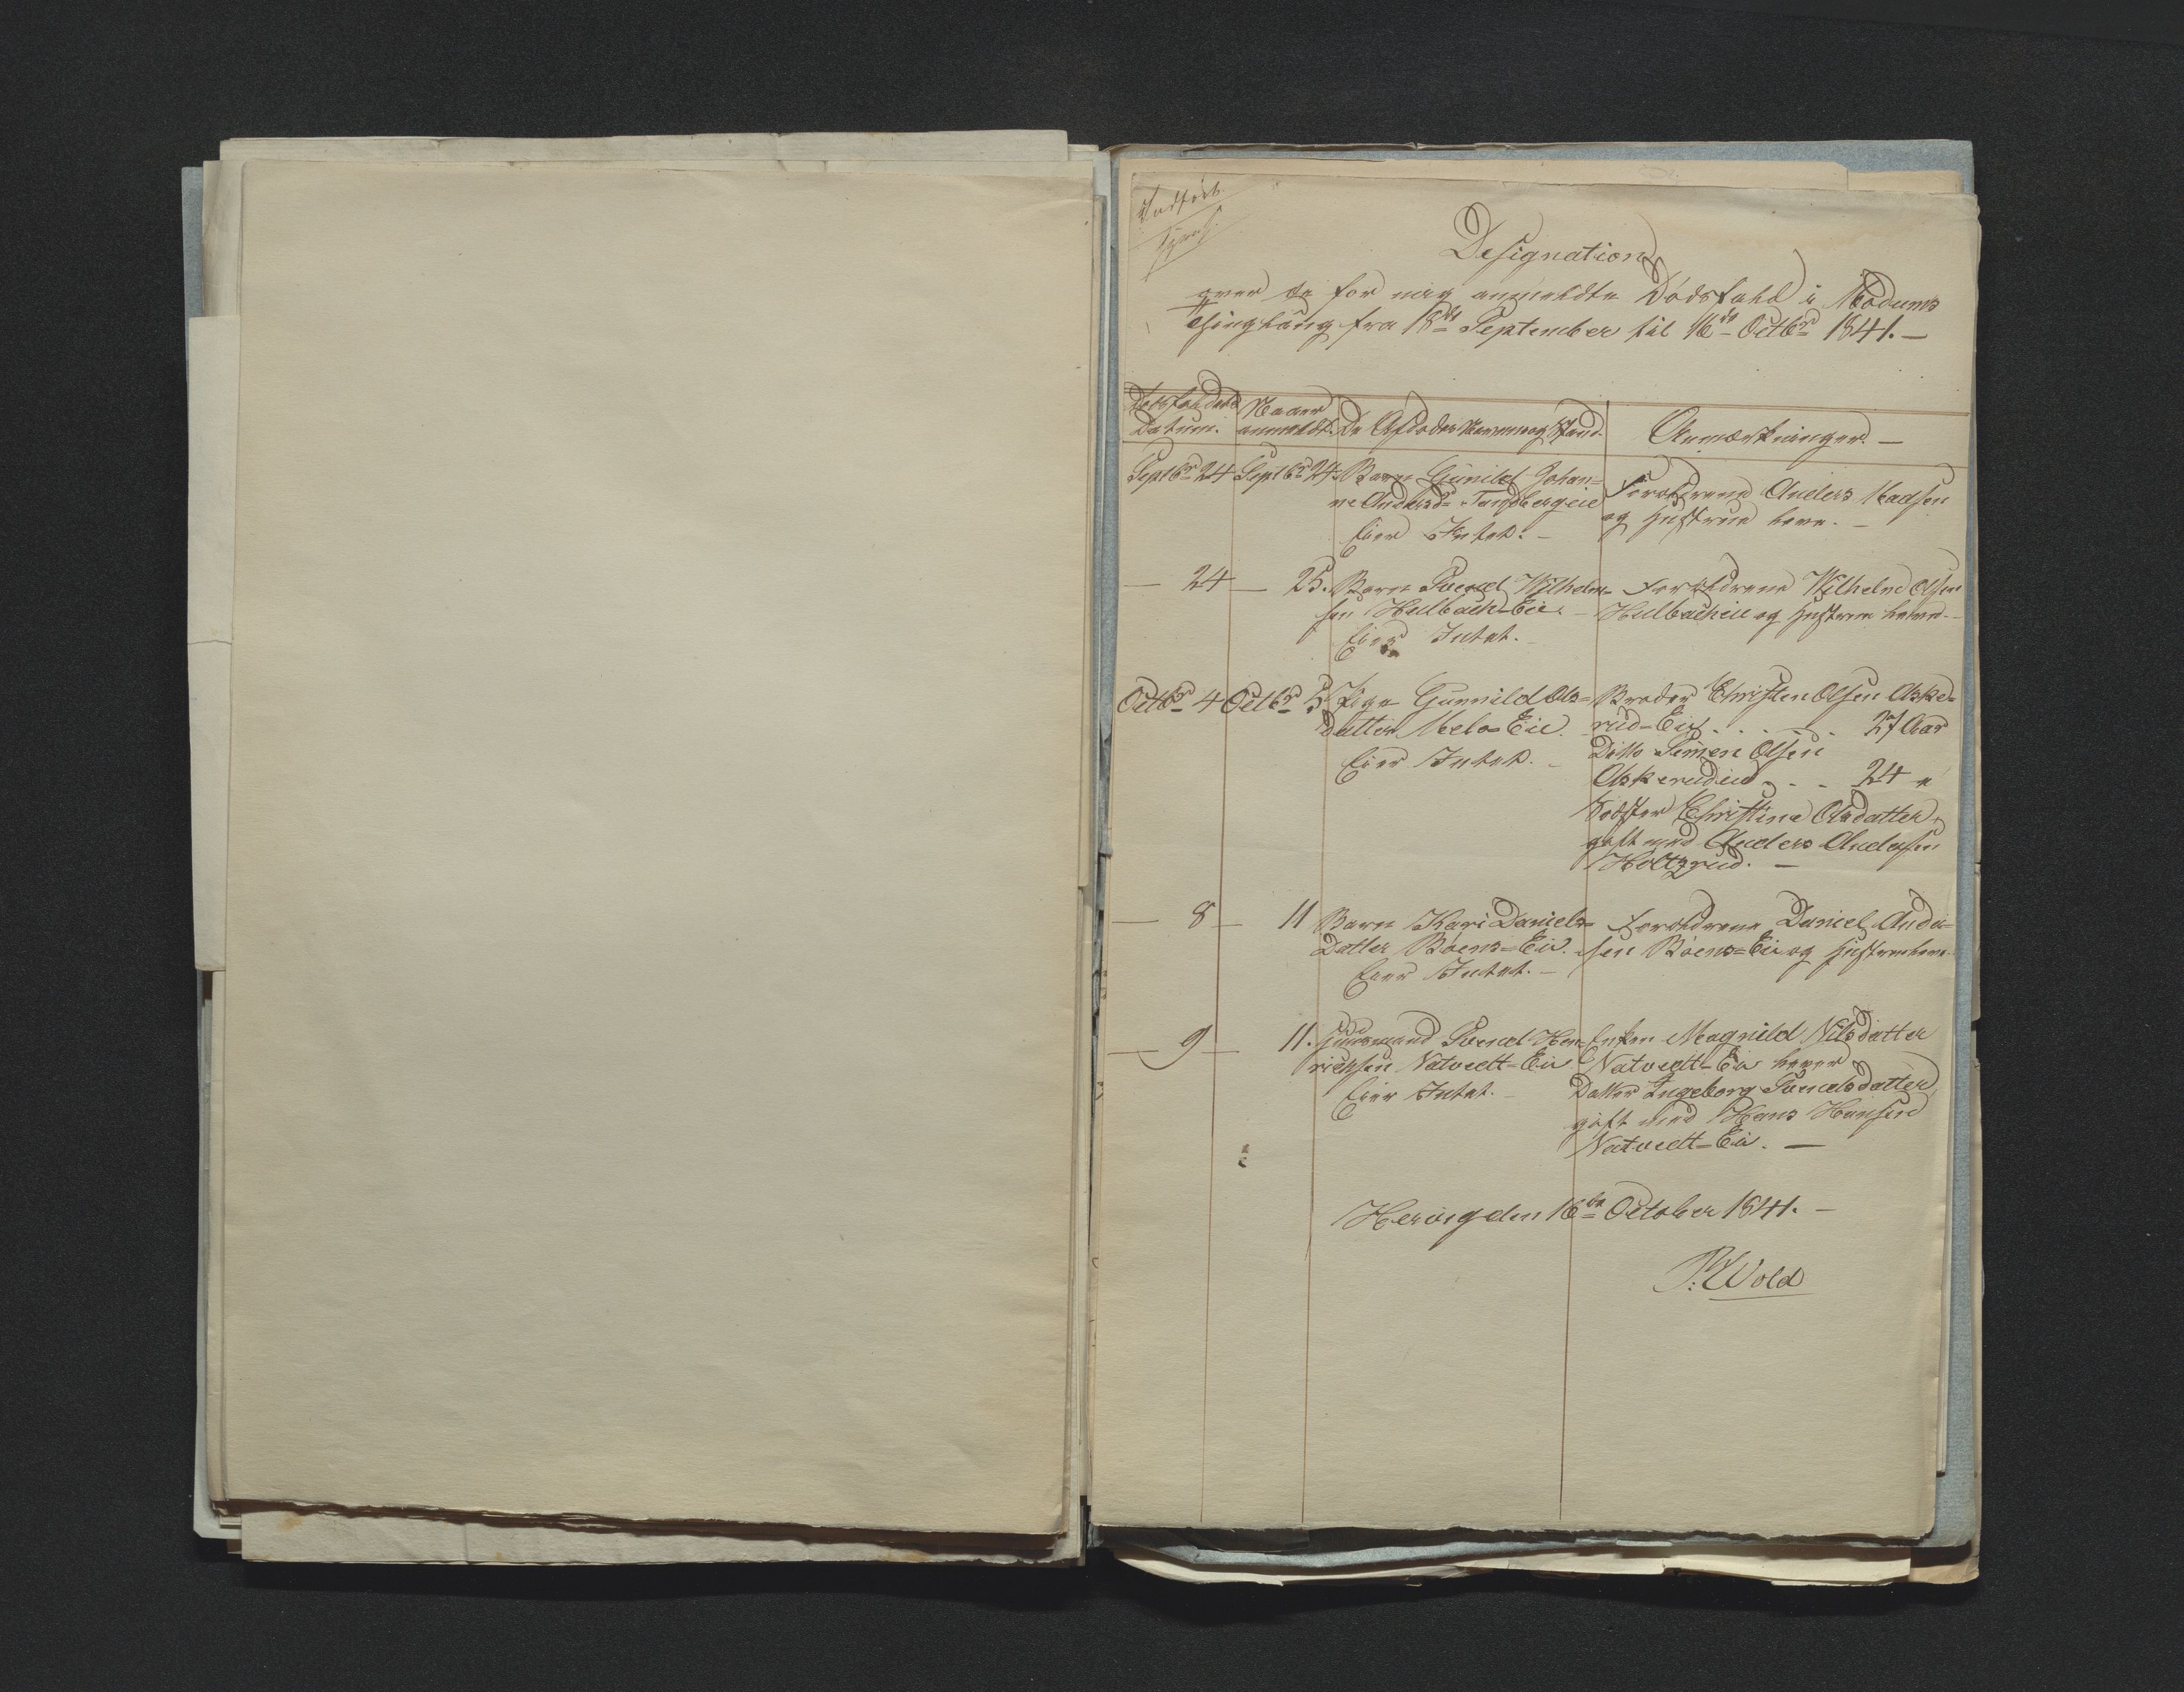 Indført
Designation
over de for mig anmeldte Dødsfald i Modums
Thinglaug fra 18de September til 16de Octbr 1841. —
Dødsfaldets Datum.
Naar anmeldt.
De Afdødes Navn og Stand.
Anmærkninger. —
Septbr 24 Septbr 24. Barn Gunild Johan=
ne Andersd= Tandbergeie
Eier Intet. —
Forældrene Anders Madsen
og Hustrue leve. —
— 24 — 25. Barn Svend Wilhelm=
sen Hulbach=Eie. —
Eier Intet. —
Forældrene Wilhelm Olsen
Hulbacheie og Hustrue lever. —
Octbr 4 Octbr 5. Pige Gunnild Ols=
datter Melo=Eie.
Eier Intet. —
Broder Christen Olsen Aske=
rud=Eie . . . . . 27 Aar
Ditto Simen Olsen
Askerudeie . . . 24 "
Søster Christine Olsdatter,
gift med Anders Andersen
Holtzrud. —
— 8 — 11 Barn Kari Daniels=
Datter Böens=Eie.
Eier Intet. —
Forældrene Daniel Ander=
sen Böens=Eie og Hustrue leve.
— 9 — 11. Huusmand Svend Hen=
richsen Natvedt=Eie
Eier Intet. —
Enken Magnild Nilsdatter
Natvedt=Eie lever
Datter Ingeborg Svendsdatter,
gift med Hans Hansen
Natvedt=Eie. —
Hering den 16de October 1841. —
P. Wold